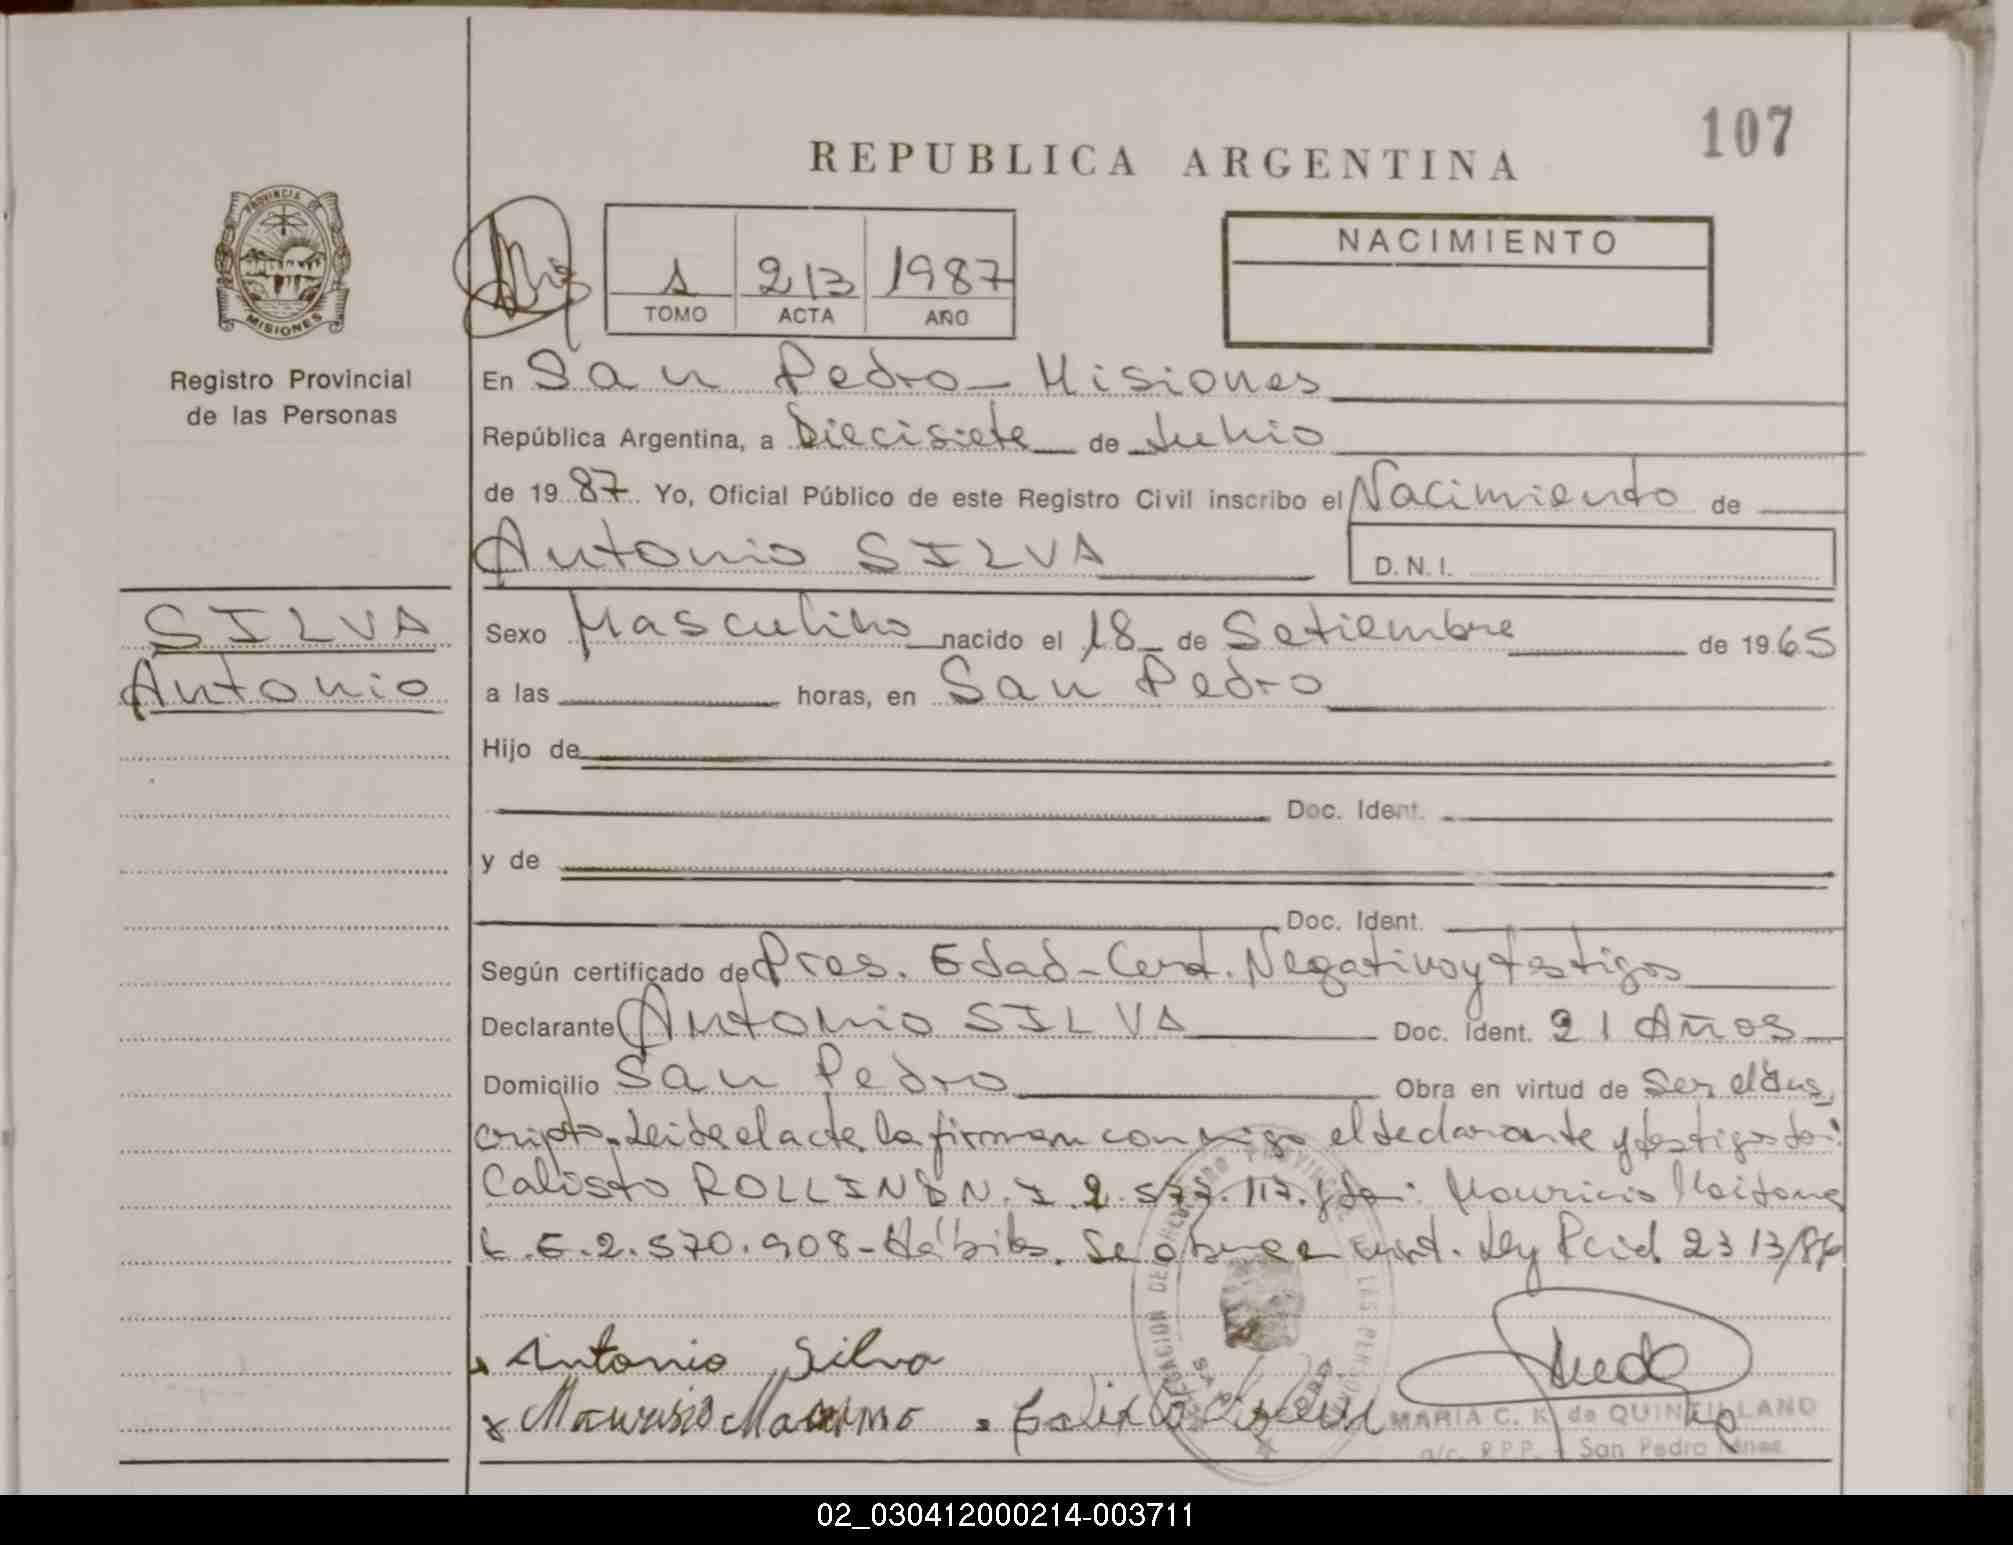 107
REPUBLICA ARGENTINA
PROVINCIA DE
MISIONES
Registro Provincial
de las Personas
1 213 1987
TOMO ACTA AÑO
NACIMIENTO
En San Pedro - Misiones
República Argentina, a Diecisiete de Junio
de 1987 Yo, Oficial Público de este Registro Civil inscribo el Nacimiento de
Antonio SILVA
D.N.I.
SILVA
Antonio
Sexo Masculino nacido el 18 de Setiembre de 1965
a las horas, en San Pedro
Hijo de
Doc. Ident.
y de
Doc. Ident.
Según certificado de Pres. Edad - Cert. Negativo y testigos
Declarante Antonio SILVA Doc. Ident. 21 Años
Domicilio San Pedro Obra en virtud de Ser el Ins
cripto. Leida el acta la firman conmigo el declarante y testigos
Calisto ROLLIN D.N.I. 2.577.117. y Mauricio
L.E. 2.570.908 - Hábiles. Se Ley Pcial 2313/86
Antonio Silva
MARIA C. K. de QUINTILLANO
a/c. R.P.P. - San Pedro Mnes.
02_030412000214-003711